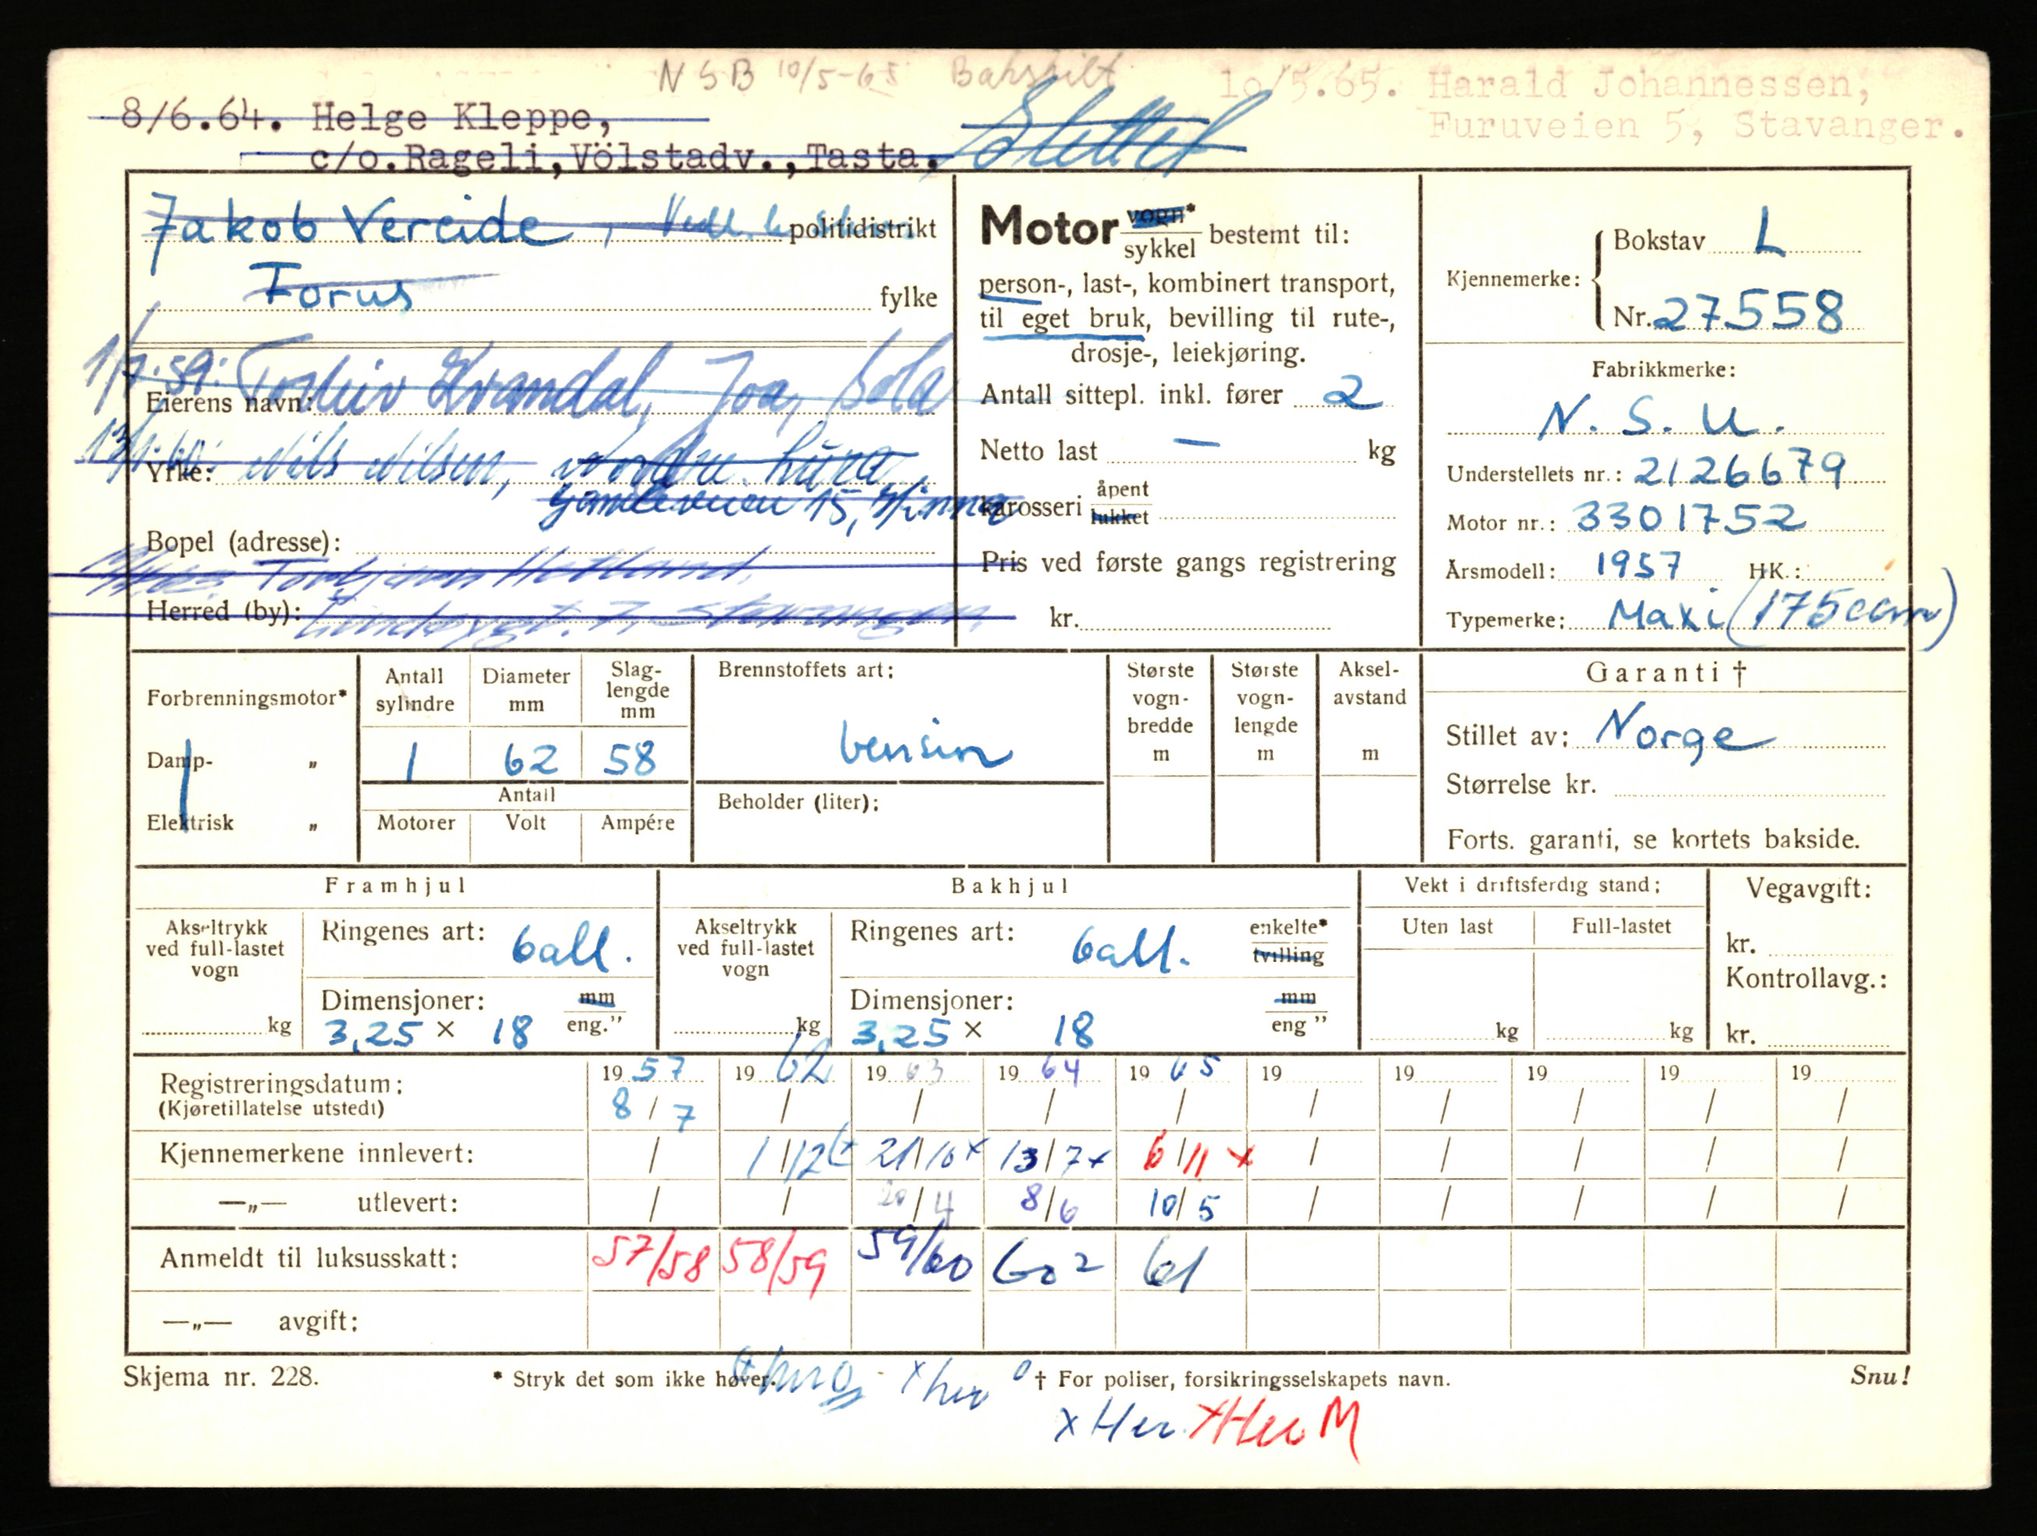 NSB 10/5-65 Bakskilt
10/5.65. Harald Johannessen,
Furuveien 5, Stavanger.
8/6.64. Helge Kleppe,
c/o.Rageli,Völstadv.,Tasta.
Slettet
Jakob Vereide, politidistrikt
Forus fylke
1/7.59: Torleiv Kvandal, Joa, Sola
Eierens navn:
Yrke: Nils Nilsen, Nordre Lura
Gamleveien 15,
Bopel (adresse):
Torbjørn Hetland,
Herred (by): 7, Stavanger,
Motor vogn*
sykkel bestemt til:
person-, last-, kombinert transport,
til eget bruk, bevilling til rute-,
drosje-, leiekjøring.
Antall sittepl. inkl. fører 2
Netto last — kg
karosseri åpent
lukket
Pris ved første gangs registrering
kr.
Kjennemerke: Bokstav L
Nr. 27558
Fabrikkmerke:
N. S. U.
Understellets nr.: 2126679
Motor nr.: 3301752
Årsmodell: 1957 HK.:
Typemerke: Maxi (175 ccm)
Forbrenningsmotor*
Damp- „
Elektrisk „
Antall sylindre
Diameter mm
Slag-lengde mm
1 62 58
Antall
Motorer Volt Ampére
Brennstoffets art:
bensin
Beholder (liter):
Største vogn-bredde m
Største vogn-lengde m
Aksel-avstand m
Garanti †
Stillet av: Norge
Størrelse kr.
Forts. garanti, se kortets bakside.
Framhjul
Akseltrykk ved full-lastet vogn
kg
Ringenes art: ball.
Dimensjoner: mm
3,25 × 18 eng."
Bakhjul
Akseltrykk ved full-lastet vogn
kg
Ringenes art: ball. enkelte*
tvilling
Dimensjoner: mm
3,25 × 18 eng "
Vekt i driftsferdig stand:
Uten last Full-lastet
kg kg
Vegavgift:
kr.
Kontrollavg.:
kr.
Registreringsdatum: 19 57 19 62 19 63 19 64 19 65 19 19 19 19 19
(Kjøretillatelse utstedt) 8/7 / / / / / / / / /
Kjennemerkene innlevert: / 1/12 21/10 x 13/7 x 6/11 x / / / / /
—„— utlevert: / / 20/4 8/6 10/5 / / / / /
Anmeldt til luksusskatt: 57/58 58/59 59/60 60² 61
—„— avgift:
Skjema nr. 228.
* Stryk det som ikke høver.
x her
† For poliser, forsikringsselskapets navn.
Snu!
x Her x Her M